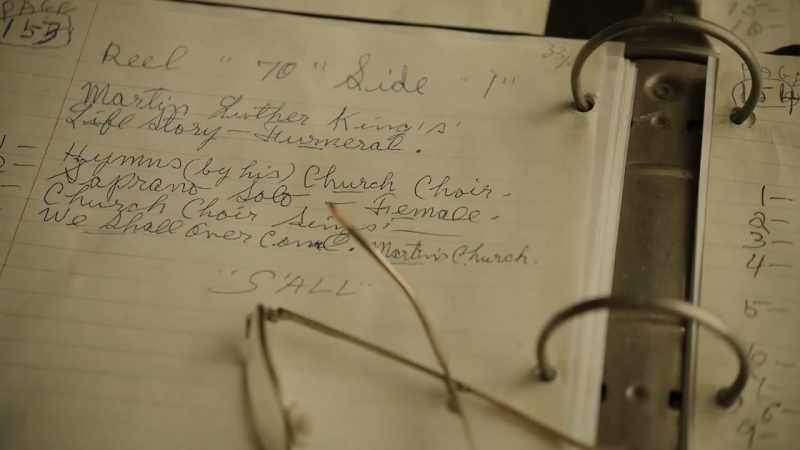 PAGE
153
Reel "70" Side "1"
33⅓
Martin Luther King's'
Life Story - Furneral.
Hymns (by his) Church Choir -
Saprano Solo - Female -
Church Choir Sings'
We Shall Over Come. Martin's Church.
"S'ALL"
PAGE
154
1 -
2 -
3 -
4 -
5 -
6 -
7 -
9 -